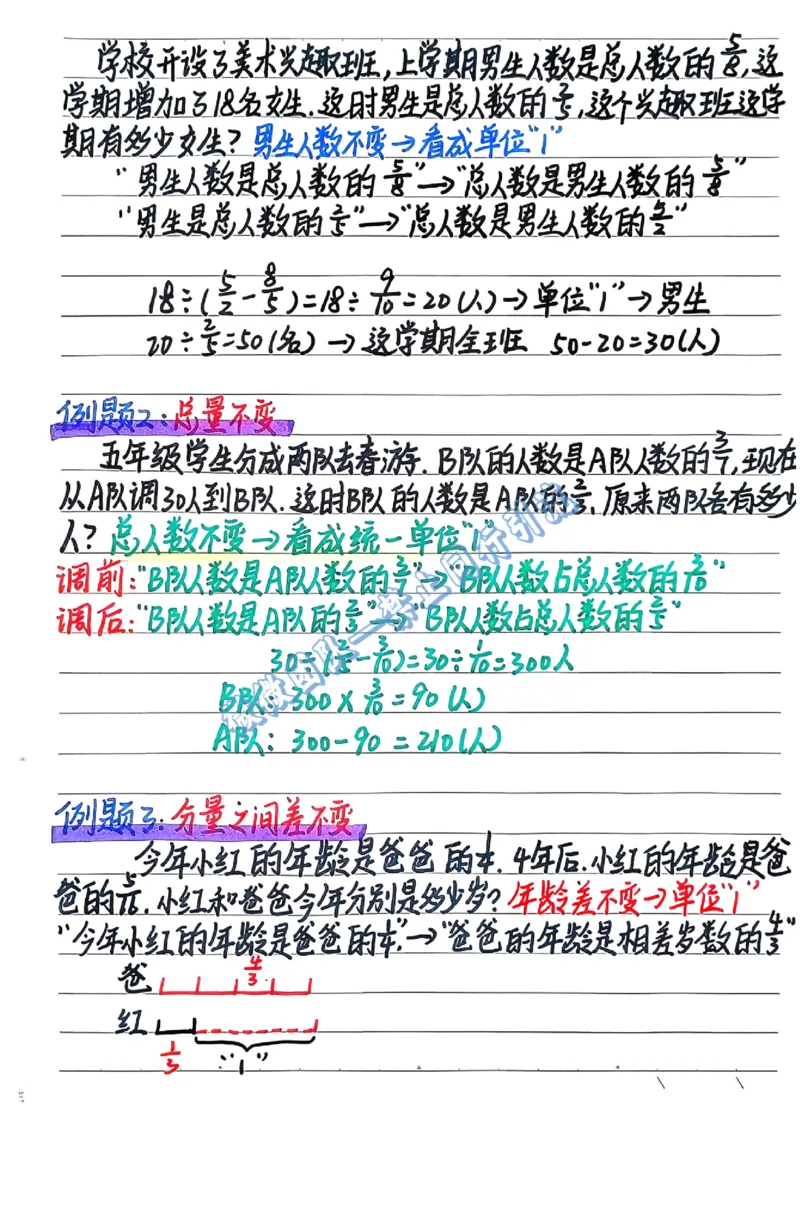 学校开设了美术兴趣班,上学期男生人数是总人数的5/8,这
学期增加了18名女生.这时男生是总人数的2/5,这个兴趣班这学
期有多少女生?男生人数不变→看成单位"1"
"男生人数是总人数的5/8"→"总人数是男生人数的5/8"
"男生是总人数的2/5"→"总人数是男生人数的5/2"
18÷(5/2-8/5)=18÷9/10=20(人)→单位"1"→男生
20÷2/5=50(名)→这学期全班 50-20=30(人)
例题2:总量不变
五年级学生分成两队去春游.B队的人数是A队人数的3/7,现在
从A队调30人到B队.这时B队的人数是A队的2/3,原来两队各有多少
人?总人数不变→看成统一单位"1"
调前:"B队人数是A队人数的3/7"→"B队人数占总人数的3/10"
调后:"B队人数是A队的2/3"→"B队人数占总人数的2/5"
30÷(2/5-3/10)=30÷1/10=300人
B队:300×3/10=90(人)
A队:300-90=210(人)
例题3:分量之间差不变
今年小红的年龄是爸爸的1/4.4年后.小红的年龄是爸
爸的5/16.小红和爸爸今年分别是多少岁?年龄差不变→单位"1"
"今年小红的年龄是爸爸的1/4"→"爸爸的年龄是相差岁数的4/3"
爸 4/3
红
1/3 "1"